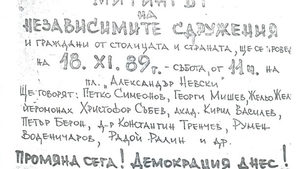 МИТИНГЪТ
НА
НЕЗАВИСИМИТЕ СДРУЖЕНИЯ
И ГРАЖДАНИ ОТ СТОЛИЦАТА И СТРАНАТА, ЩЕ СЕ ПРОВЕД
НА 18. XI. 89. - СЪБОТА, ОТ 11 Ч. НА
ПЛ. „АЛЕКСАНДЪР НЕВСКИ"
ЩЕ ГОВОРЯТ: ПЕТКО СИМЕОНОВ, ГЕОРГИ МИШЕВ, ЖЕЛЬО ЖЕЛ
ЙЕРОМОНАХ ХРИСТОФОР СЪБЕВ, АКАД. КИРИЛ ВАСИЛЕВ,
ПЕТЪР БЕРОН, Д-Р КОНСТАНТИН ТРЕНЧЕВ, РУМЕН
ВОДЕНИЧАРОВ, РАДОЙ РАЛИН И ДР.
ПРОМЯНА СЕГА! ДЕМОКРАЦИЯ ДНЕС!